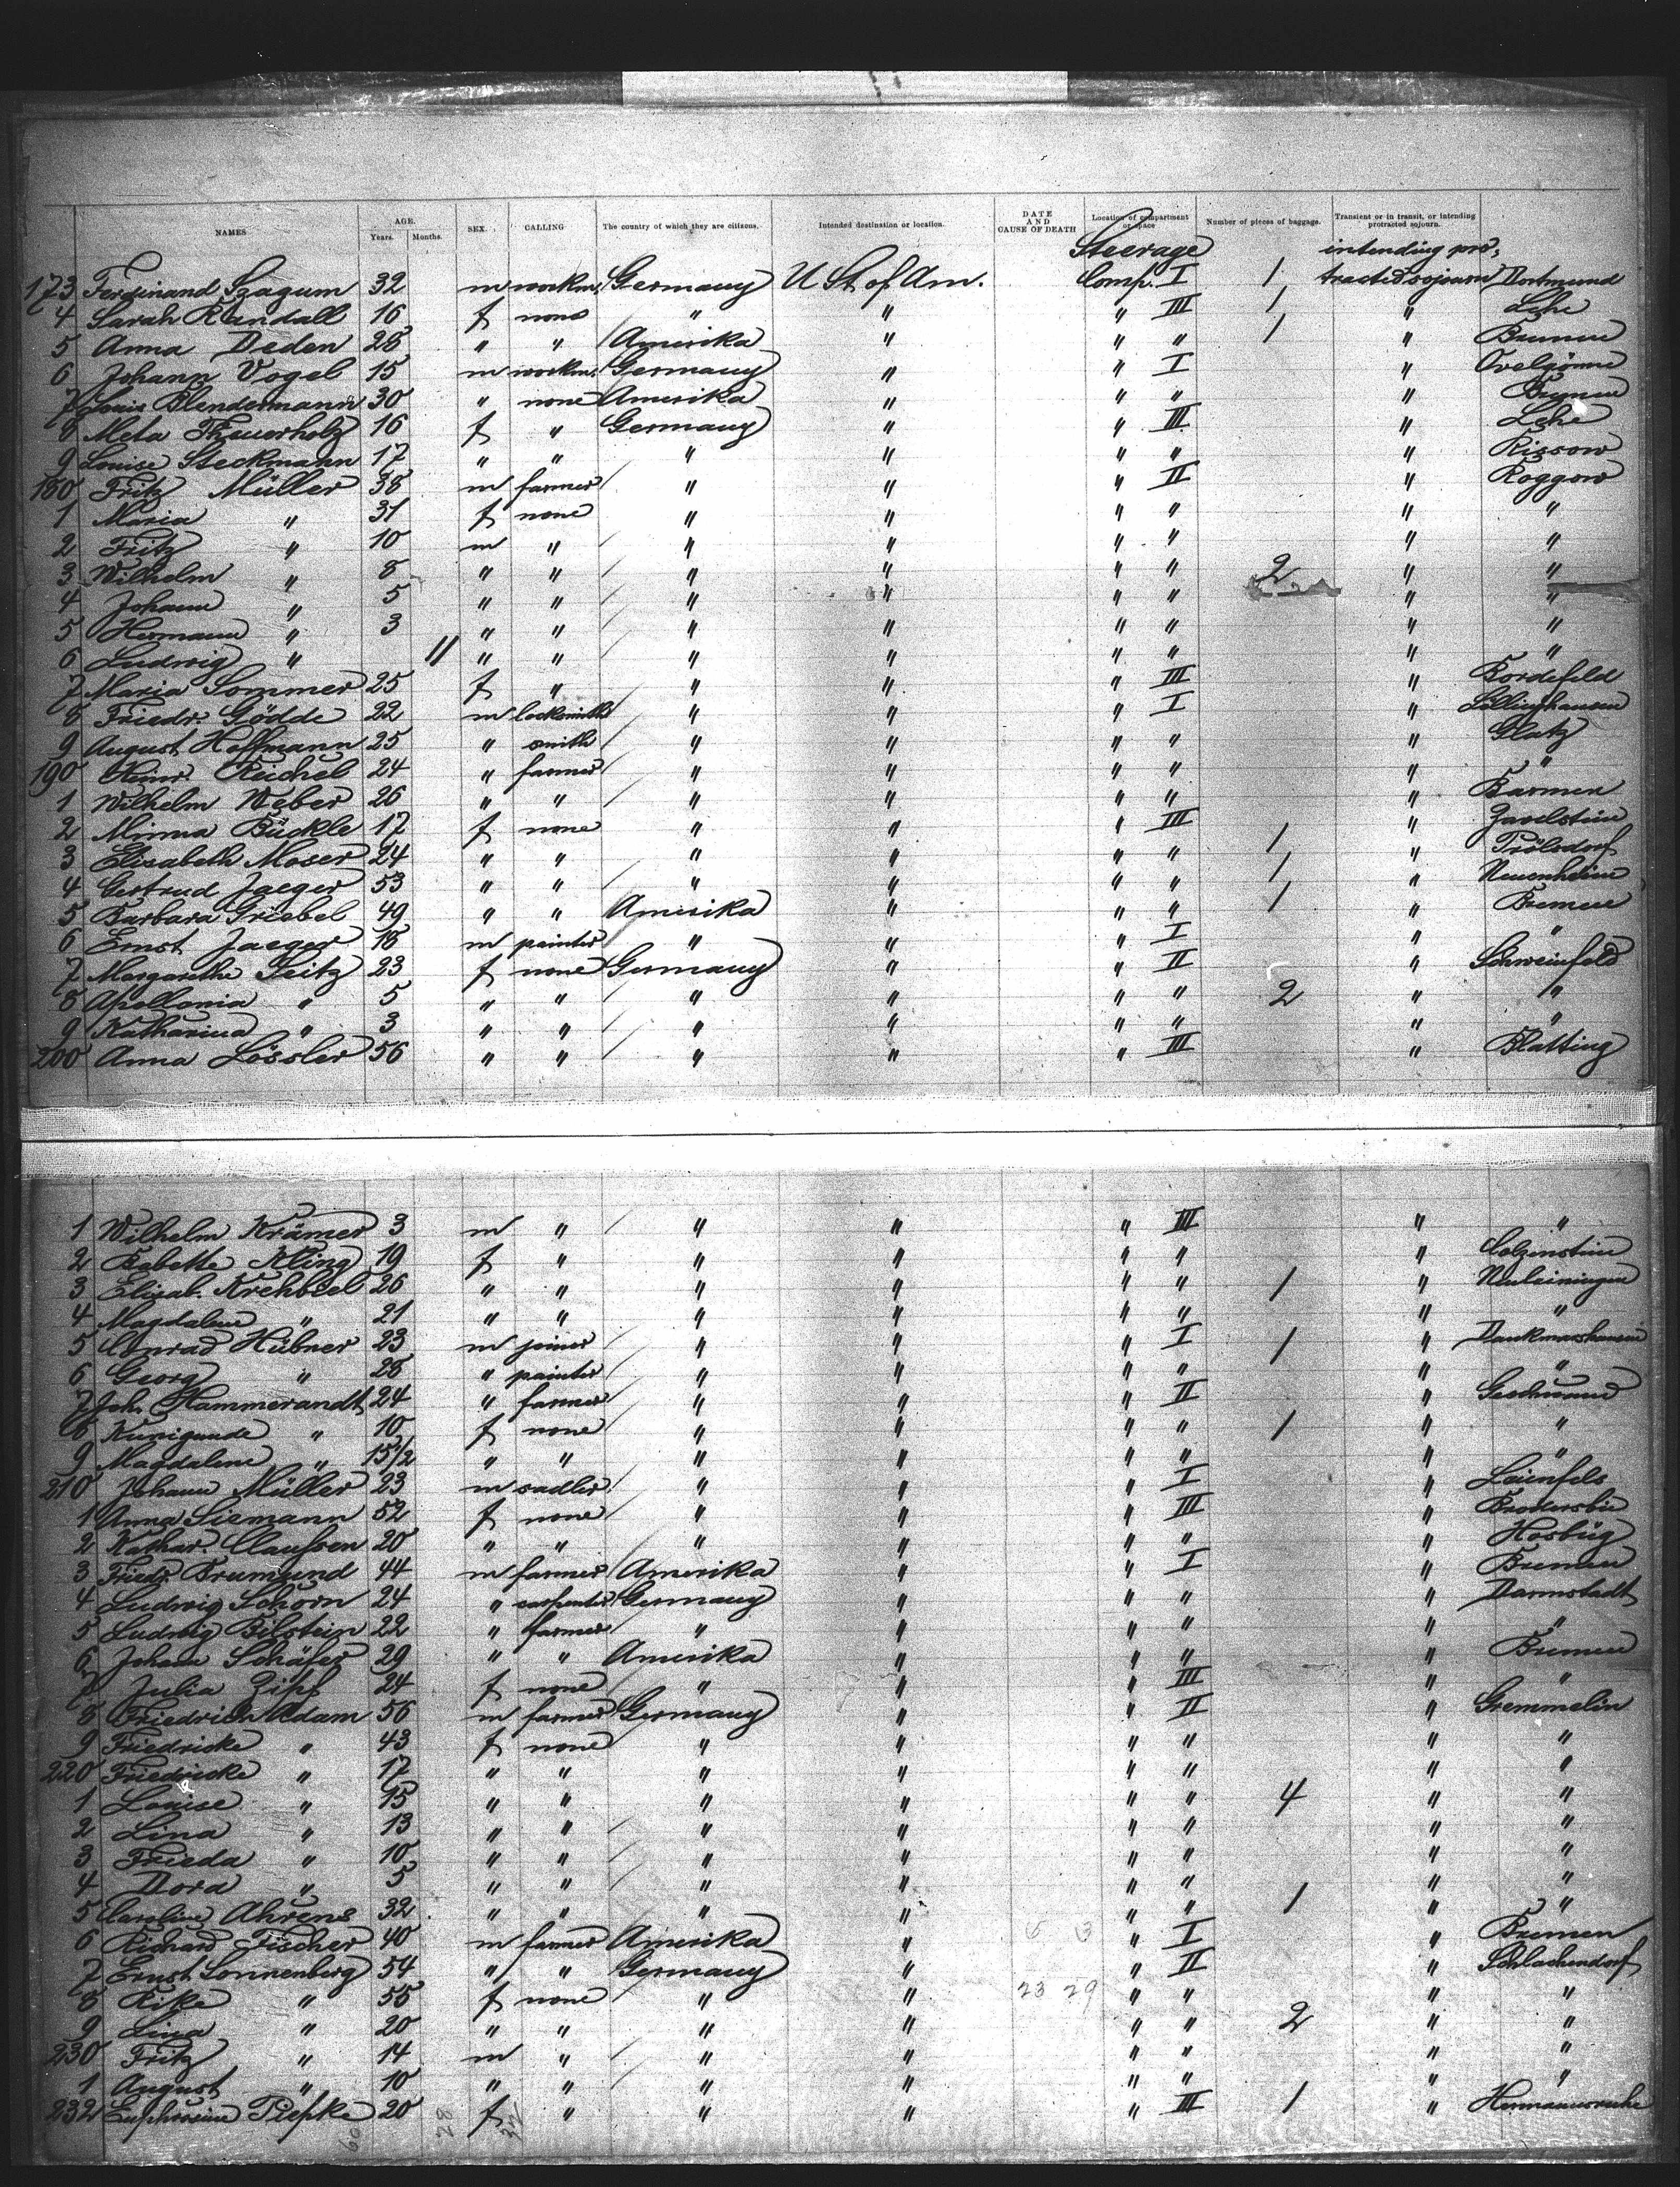 NAMES AGE. Years. Months. SEX. CALLING The country of which they are citizens. Intended destination or location. DATE AND CAUSE OF DEATH Location of compartment or space Number of pieces of baggage. Transient or in transit, or intending protracted sojourn.
Steerage intending pro-
173 Ferdinand Szagum 32 m workm. Germany U St. of Am. Comp. I 1 tracted sojourn Dortmund
4 Sarah Randall 16 f none " " " III 1 " Lehe
5 Anna Deden 28 " " Amerika " " " 1 " Bremen
6 Johann Vogel 15 m workm. Germany " " I " Ovelgönne
7 Louis Blendermann 30 " none Amerika " " " " Bremen
8 Meta Theuerholz 16 f " Germany " " III " Lehe
9 Louise Steckmann 17 " " " " " " " Rissow
180 Fritz Müller 38 m farmer " " " II " Roggow
1 Maria " 31 f none " " " " " "
2 Fritz " 10 m " " " " " " "
3 Wilhelm " 8 " " " " " " 2 " "
4 Johann " 5 " " " " " " " "
5 Hermann " 3 " " " " " " " "
6 Ludwig " 11 " " " " " " " "
7 Maria Sommer 25 f " " " " III " Bordefeld
8 Friedr. Gödde 22 m locksmith " " " I "
9 August Hoffmann 25 " smith " " " " " Glatz
190 Heinr. Reichel 24 " farmer " " " " " "
1 Wilhelm Weber 26 " " " " " " " Barmen
2 Minna Bückle 17 f none " " " III 1 " Zavelstein
3 Elisabeth Moser 24 " " " " " " 1 " Prölsdorf
4 Gertrud Jaeger 53 " " " " " " 1 " Neuenheim
5 Barbara Griebel 49 " " Amerika " " " " Bremen
6 Ernst Jaeger 18 m painter " " " I " "
7 Margarethe Seitz 23 f none Germany " " II " Schweinfeld
8 Apollonia " 5 " " " " " " 2 " "
9 Katharina " 3 " " " " " " " "
200 Anna Lössler 56 " " " " " III " Blatting
1 Wilhelm Krämer 3 m " " " " III " "
2 Babette Kling 19 f " " " " " " Colgenstein
3 Elisab. Krehbiel 26 " " " " " " 1 " Neuleiningen
4 Magdalene " 21 " " " " " " " "
5 Conrad Hübner 23 m joiner " " " I 1 " Dankmarshausen
6 Georg " 28 " painter " " " " " "
7 Joh. Hammerandt 24 " farmer " " " II " Geschwand
8 Kunigunde " 10 f none " " " " 1 " "
9 Magdalene " 15 1/2 " " " " " " " "
210 Johann Müller 23 m sadler " " " I " Leienfels
1 Anna Siemann 52 f none " " " III " Brodersbie
2 Kathar. Claussen 20 " " " " " " " Hosbüg
3 Friedr. Brumund 44 m farmer Amerika " " I " Bremen
4 Ludwig Schorn 24 " carpenter Germany " " " " Darmstadt
5 Ludwig Bilstein 22 " farmer " " " " " "
6 Johann Schäfer 29 " " Amerika " " " " Bremen
7 Julia Zipf 24 f none " " " III " "
8 Friedrich Adam 56 m farmer Germany " " II " Gremmelin
9 Friedricke " 43 f none " " " " " "
220 Friedricke " 17 " " " " " " " "
1 Louise " 15 " " " " " " 4 " "
2 Lina " 13 " " " " " " " "
3 Frieda " 10 " " " " " " " "
4 Dora " 5 " " " " " " " "
5 Caroline Ahrens 32 " " " " " " 1 " "
6 Richard Fischer 40 m farmer Amerika " 6 3 " I " Bremen
7 Ernst Sonnenberg 54 " " Germany " " II " Schlachendorf
8 Rike " 55 f none " " 23 29 " " " "
9 Lina " 20 " " " " " " 2 " "
230 Fritz " 14 m " " " " " " "
1 August " 10 " " " " " " " "
232 Euphrosine Piepke 20 f " " " " III 1 " Hermannsruhe
60 28 32